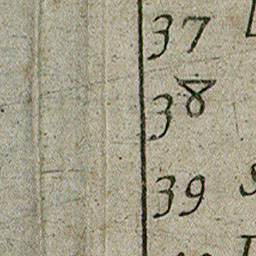 37
38
39